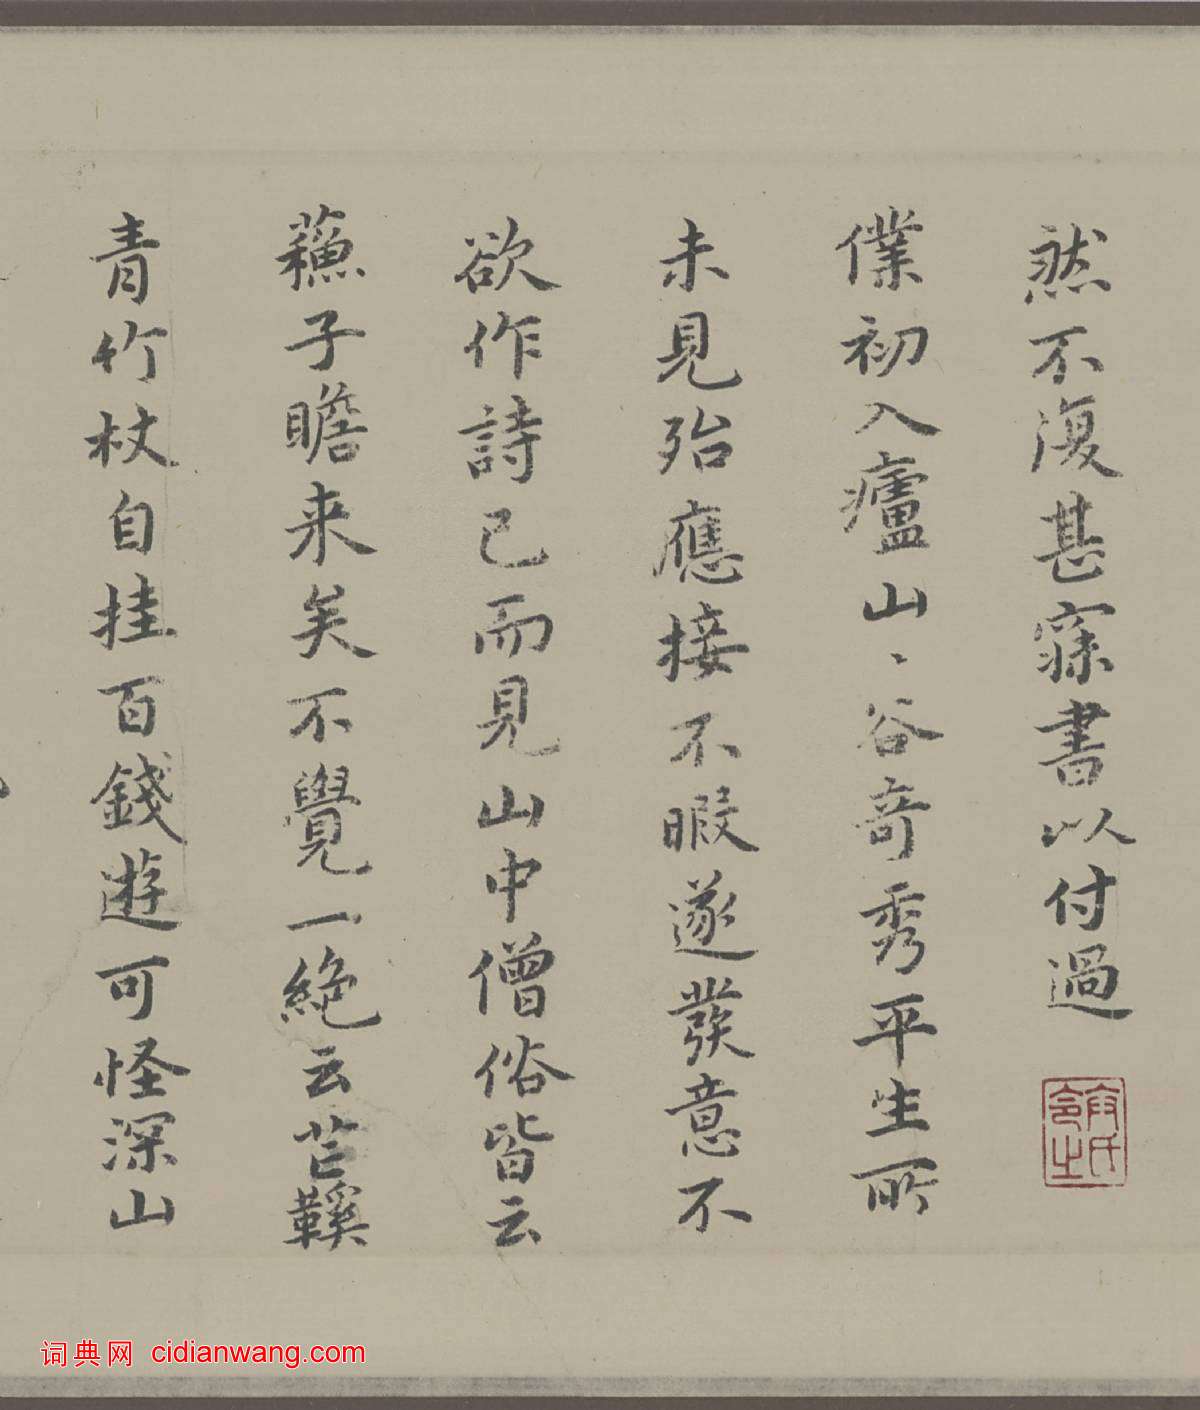 然不復甚寐書以付過
僕初入廬山、谷奇秀平生所
未見殆應接不暇遂發意不
欲作詩已而見山中僧俗皆云
蘓子瞻来矣不覺一絶云芒鞵
青竹杖自挂百錢遊可怪深山
词典网 cidianwang.com